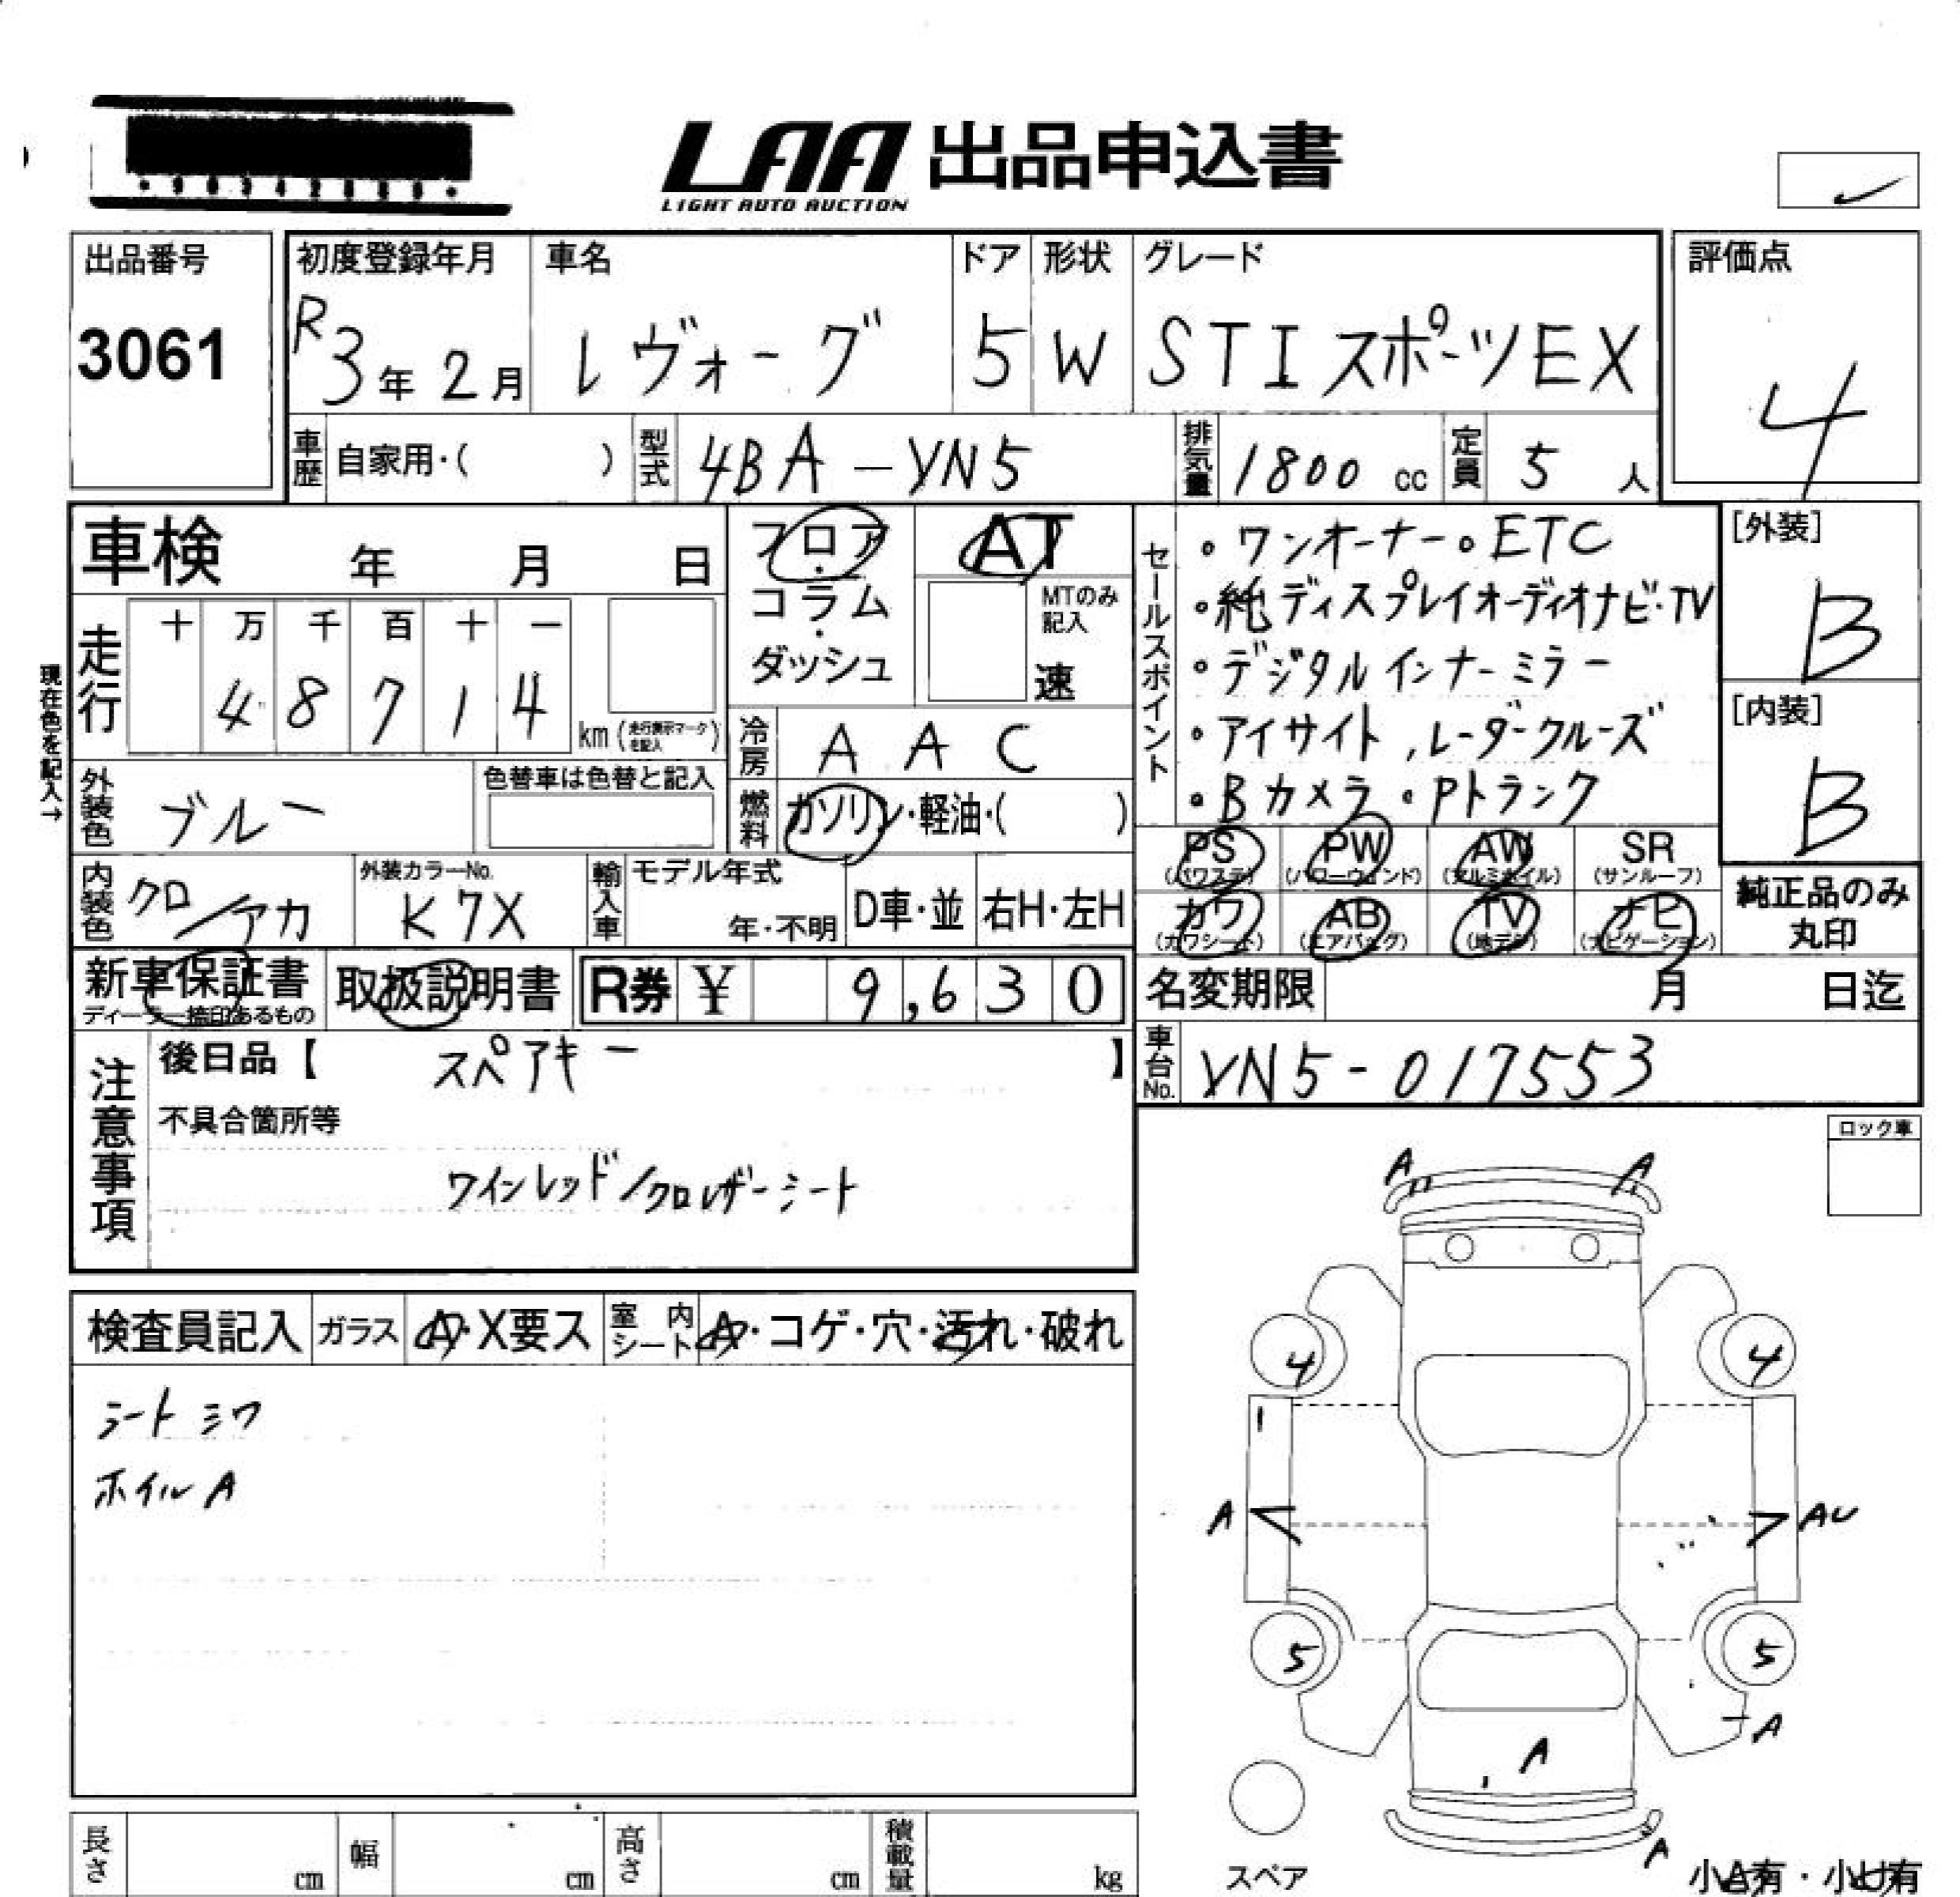 LAA 出品申込書
LIGHT AUTO AUCTION
出品番号
3061
初度登録年月
R3年2月
車名
レヴォーグ
ドア
5
形状
W
グレード
STIスポーツEX
評価点
4
車歴 自家用・( )
型式 4BA-VN5
排気量 1800 cc
定員 5 人
車検 年 月 日
現在色を記入→
走行
十 万 千 百 十 一
4 8 7 1 4
km (走行表示マークを記入)
外装色 ブルー
色替車は色替と記入
内装色 クロ/アカ
外装カラーNo.
K7X
フロア・コラム・ダッシュ
AT
MTのみ記入
速
冷房 AAC
燃料 ガソリン・軽油・( )
輸入車 モデル年式
年・不明
D車・並 右H・左H
新車保証書
ディーラー捺印あるもの
取扱説明書
R券 ¥ 9,630
セールスポイント
・ワンオーナー・ETC
・純ディスプレイオーディオナビ・TV
・デジタルインナーミラー
・アイサイト,レーダークルーズ
・Bカメラ・Pトランク
[外装]
B
[内装]
B
PS (パワステ) PW (パワーウィンド) AW (アルミホイル) SR (サンルーフ)
カワ (カワシート) AB (エアバッグ) TV (地デジ) ナビ (ナビゲーション)
純正品のみ
丸印
名変期限 月 日迄
車台No. VN5-017553
注意事項
後日品【 スペアキー 】
不具合箇所等
ワインレッド/クロレザーシート
ロック車
検査員記入 ガラス A・X要ス 室内シート A・コゲ・穴・汚れ・破れ
シートシワ
ホイルA
A A
4 4
A AU
5 5
A
A
A
スペア
小A有・小U有
長さ cm 幅 cm 高さ cm 積載量 kg